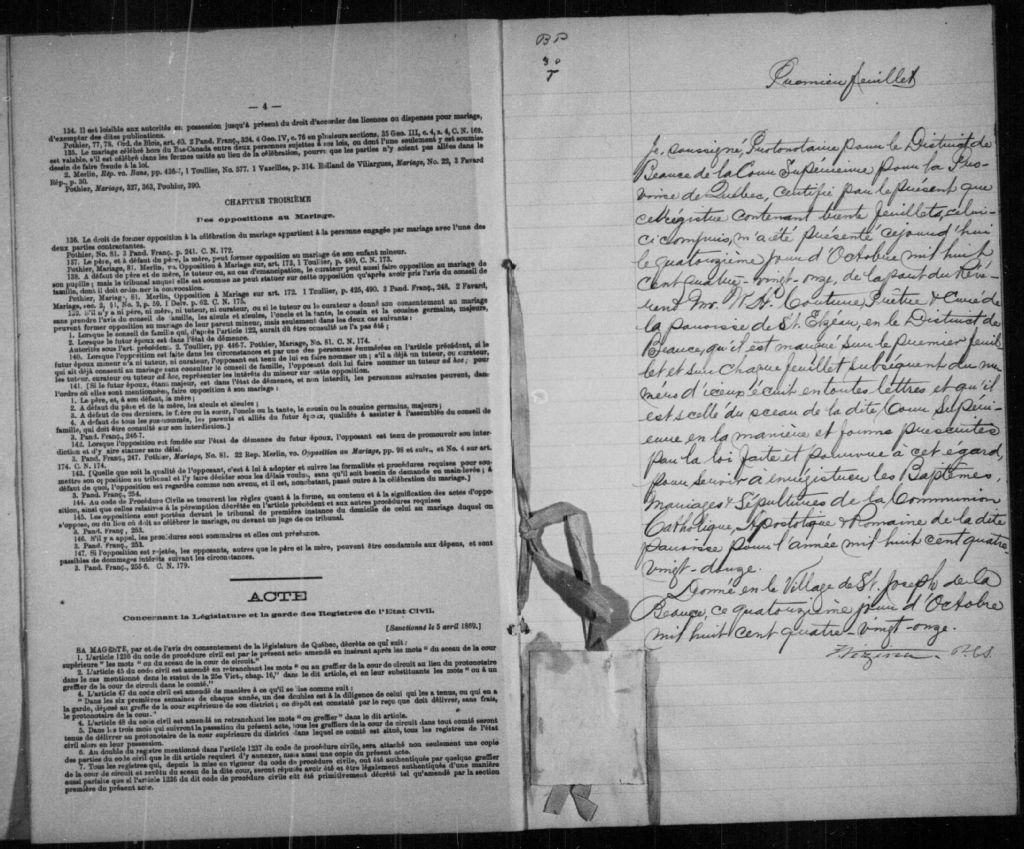 — 4 —
134. Il est loisible aux autorités en possession jusqu'à présent du droit d'accorder des licences ou dispenses pour mariage,
d'exempter des dites publications.
Pothier, 77, 78. Ord. de Blois, art. 40. 2 Pand. Franç., 324. 4 Geo. IV, c. 76 en plusieurs sections, 35 Geo. III, c. 4, s. 4, C. N. 169.
135. Le mariage célébré hors du Bas-Canada entre deux personnes sujettes à ses lois, ou dont l'une seulement y est soumise
est valable, s'il est célébré dans les formes usitées au lieu de la célébration, pourvu que les parties n'y soient pas allées dans le
dessein de faire fraude à la loi.
2. Merlin, Rép. vo. Bans, pp. 1 Toullier, No. 577. 1 Vazeilles, p. 314. Rolland de Villargues, Mariage, No. 22, 3 Favard
Rép., p. 50.
Pothier, Mariage, 327, 363, Pothier, 390.
CHAPITRE TROISIÈME
Des oppositions au Mariage.
136. Le droit de former opposition à la célébration du mariage appartient à la personne engagée par mariage avec l'une des
deux parties contractantes.
Pothier, No. 81. 3 Pand. Franç., p. 241. C. N. 172.
137. Le père, et à défaut du père, la mère, peut former opposition au mariage de son enfant mineur.
Pothier, Mariage, 81. Merlin, vo. Opposition à Mariage, sur art. 173, 1 Toullier, p. 489, C. N. 173.
138. A défaut de père et de mère, le tuteur ou, au cas d'émancipation, le curateur peut aussi faire opposition au mariage de
son pupille; mais le tribunal auquel elle est soumise ne peut statuer sur cette opposition qu'après avoir pris l'avis du conseil de
famille, dont il doit ordonner la convocation.
Pothier, Mariage, 81. Merlin, Opposition à Mariage sur art. 172. 1 Toullier, p. 425, 490. 3 Pand. Franç., 248. 2 Favard,
Mariage, sec. 2, §1, No. 3, p. 59. 1 Delv. p. 62. C. N. 175.
139. S'il n'y a ni père, ni mère, ni tuteur, ni curateur, ou si le tuteur ou le curateur a donné son consentement au mariage
sans prendre l'avis du conseil de famille, les aïeuls et aïeules, l'oncle et la tante, le cousin et la cousine germains, majeurs,
peuvent former opposition au mariage de leur parent mineur, mais seulement dans les deux cas suivants:
1. Lorsque le conseil de famille qui, d'après l'article 122, aurait dû être consulté ne l'a pas été;
2. Lorsque le futur époux est dans l'état de démence.
Autorités sous l'art. précédent. 2. Toullier, pp. 446-7. Pothier, Mariage, No. 81. C. N. 174.
140. Lorsque l'opposition est faite dans les circonstances et par une des personnes énumérées en l'article précédent, si le
futur époux mineur n'a ni tuteur, ni curateur, l'opposant est tenu de lui en faire nommer un; s'il a déjà un tuteur, ou curateur,
qui ait déjà consenti au mariage sans consulter le conseil de famille, l'opposant doit lui faire nommer un tuteur ad hoc; pour
les tuteur, curateur ou tuteur ad hoc, représenter les intérêts du mineur sur cette opposition.
141. [Si le futur époux, étant majeur, est dans l'état de démence, et non interdit, les personnes suivantes peuvent, dans
l'ordre où elles sont mentionnées, faire opposition à son mariage:
1. Le père, et, à son défaut, la mère;
2. A défaut du père et de la mère, les aïeuls et aïeules;
3. A défaut de ces derniers, le frère ou la sœur, l'oncle ou la tante, le cousin ou la cousine germains, majeurs;
4. A défaut de tous les sus-nommés, les parents et alliés du futur époux, qualifiés à assister à l'assemblée du conseil de
famille, qui doit être consulté sur son interdiction.]
3. Pand. Franç., 246-7.
142. Lorsque l'opposition est fondée sur l'état de démence du futur époux, l'opposant est tenu de promouvoir son inter-
diction et d'y faire statuer sans délai.
3. Pand. Franç., 247. Pothier, Mariage, No. 81. 22 Rep. Merlin, vo. Opposition au Mariage, pp. 98 et suiv., et No. 4 sur art.
174. C. N. 174.
143. [Quelle que soit la qualité de l'opposant, c'est à lui à adopter et suivre les formalités et procédures requises pour sou-
mettre son opposition au tribunal et l'y faire décider sous les délais voulus, sans qu'il soit besoin de demande en main-levée; à
défaut de quoi, l'opposition est regardée comme non avenu, et il est, nonobstant, passé outre à la célébration du mariage.]
3. Pand. Franç., 254.
144. Au code de Procédure Civile se trouvent les règles quant à la forme, au contenu et à la signification des actes d'oppo-
sition, ainsi que celles relatives à la péremption décrétée en l'article précédent et aux autres procédures requises.
145. Les oppositions sont portées devant le tribunal de première instance du domicile de celui au mariage duquel on
s'oppose, ou du lieu où doit se célébrer le mariage, ou devant un juge de ce tribunal.
3. Pand. Franç., 253.
146. S'il y a appel, les procédures sont sommaires et elles ont préséance.
3. Pand. Franç., 253.
147. Si l'opposition est rejetée, les opposants, autres que le père et la mère, peuvent être condamnés aux dépens, et sont
passibles de dommages intérêts suivant les circonstances.
3. Pand. Franç., 255-6. C. N. 179.
ACTE
Concernant la Législature et la garde des Registres de l'Etat Civil.
[Sanctionné le 5 avril 1869.]
SA MAGESTE, par et de l'avis du consentement de la législature de Québec, décrète ce qui suit:
1. L'article 1236 du code de procédure civil est par le présent acte amendé en insérant après les mots "du sceau de la cour
supérieure" les mots "ou du sceau de la cour de circuit."
2. L'article 45 du code civil est amendé en retranchant les mots "ou au greffier de la cour de circuit au lieu du protonotaire
dans le cas mentionné dans le statut de la 25e Vict., chap. 16," dans le dit article, et en leur substituant les mots "ou à un
greffier de la cour de circuit dans le comté."
3. L'article 47 du code civil est amendé de manière à ce qu'il se lise comme suit:
"Dans les six premières semaines de chaque année, un des doubles est à la diligence de celui qui les a tenus, ou qui en a
la garde, déposé au greffe de la cour supérieure de son district; ce dépôt est constaté par le reçu que doit délivrer, sans frais,
le protonotaire de la cour."
4. L'article 48 du code civil est amendé en retranchant les mots "ou greffier" dans le dit article.
5. Dans les trois mois qui suivront la passation du présent acte, tous les greffiers de la cour de circuit dans tout comté seront
tenus de délivrer au protonotaire de la cour supérieure du district dans lequel ce comté est situé, tous les registres de l'état
civil alors en leur possession.
6. Au double du registre mentionné dans l'article 1237 du code de procédure civile, sera attaché non seulement une copie
des parties du code civil que le dit article requiert d'y annexer, mais aussi une copie du présent acte.
7. Tous les registres qui, depuis la mise en vigueur du code de procédure civile, ont été authentiqués par quelque greffier
de la cour de circuit et revêtu du sceau de la dite cour, seront réputés avoir été et être légalement authentiqués d'une manière
aussi parfaite que si l'article 1236 du dit code de procédure civile eût été primitivement décrété tel qu'amendé par la section
première du présent acte.
BP
30
T
Premier feuillet
Je, soussigné, Protonotaire pour le District de
Beauce de la Cour Supérieure pour la Pro-
vince de Québec, certifie par le présent que
ce Régistre contenant trente feuillets, celui-
ci compris, m'a été présenté cejourd'hui
le quatorzième jour d'Octobre mil huit
cent quatre-vingt-onze, de la part du Révé-
rend Mr. Couture, Prêtre & Curé de
la paroisse de St. Elzéar, en le District de
Beauce, qu'il est marqué sur le premier feuil-
let et sur chaque feuillet subséquent du nu-
méro d'iceux écrit en toutes lettres et qu'il
est scellé du sceau de la dite Cour Supéri-
eure en la manière et forme prescrites
par la loi faite et pourvue à cet égard,
pour servir à enrégistrer les Baptêmes,
Mariages & Sépultures de la Communion
Catholique, Apostolique & Romaine de la dite
paroisse pour l'année mil huit cent quatre
vingt-douze.
Donné en le Village de St. Joseph de la
Beauce, ce quatorzième jour d'Octobre
mil huit cent quatre-vingt-onze.